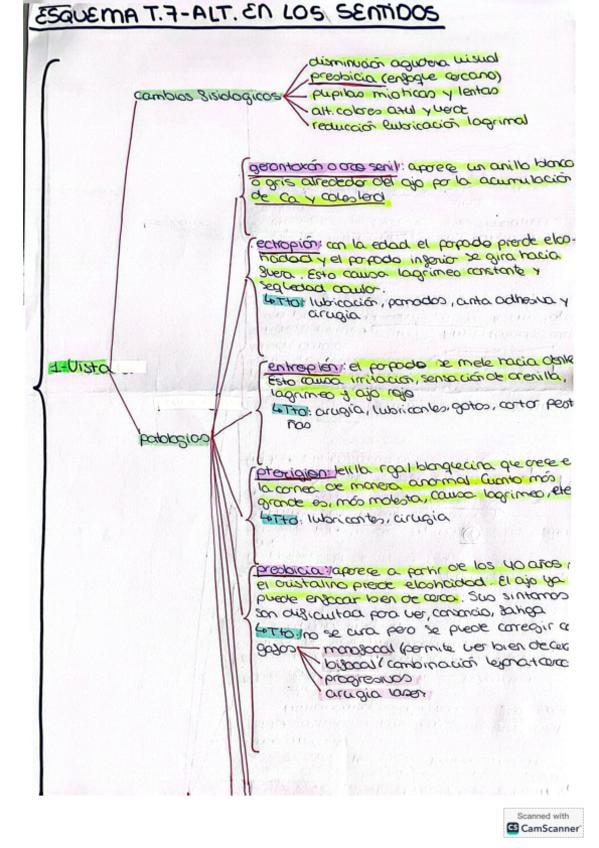 ESQUEMA T.7-ALT. EN LOS SENTIDOS
1-Vista
cambios fisiologicos
disminución agudeza visual
presbicia (enfoque cercano)
pupilas mioticas y lentas
alt. colores azul y verde
reducción lubricación lagrimal
patologias
gerontoxón o arco senil: aparece un anillo blanco
o gris alrededor del ojo por la acumulación
de Ca y colesterol
ectropión: con la edad el parpado pierde elas-
ticidad y el parpado inferior se gira hacia
fuera. Esto causa lagrimeo constante y
sequedad ocular.
↳Tto: lubricación, pomadas, cinta adhesiva y
cirugia.
entropión: el parpado se mete hacia dentr
Esto causa irritación, sensación de arenilla,
lagrimeo y ojo rojo
↳Tto: cirugia, lubricantes, gotas, cortar pest
ñas
pterigion: telilla rojal blanquecina que crece e
la cornea de manera anormal. Cuanto más
grande es, más molesta, causa lagrimeo, etc
↳Tto: lubricantes, cirugia
presbicia: aparece a partir de los 40 años,
el cristalino pierde elasticidad. El ojo ya
puede enfocar bien de cerca. Sus sintomas
son dificultad para ver, cansancio, fatiga
↳Tto: no se cura pero se puede corregir co
gafas
monofocal (permite ver bien de cerc
bifocal/combinación lejana+cerca
progresivas
cirugia laser
Scanned with
CS CamScanner